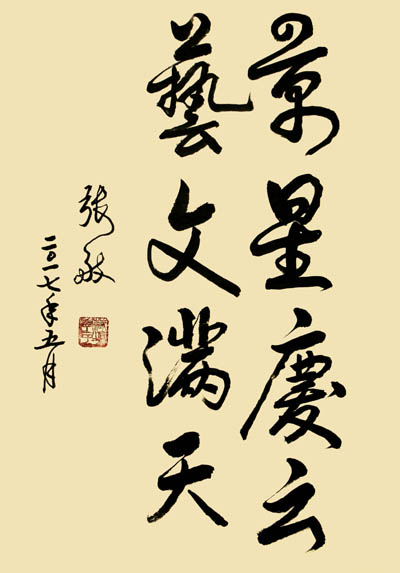 景星慶云
藝文滿天
張敏
二〇一七年五月